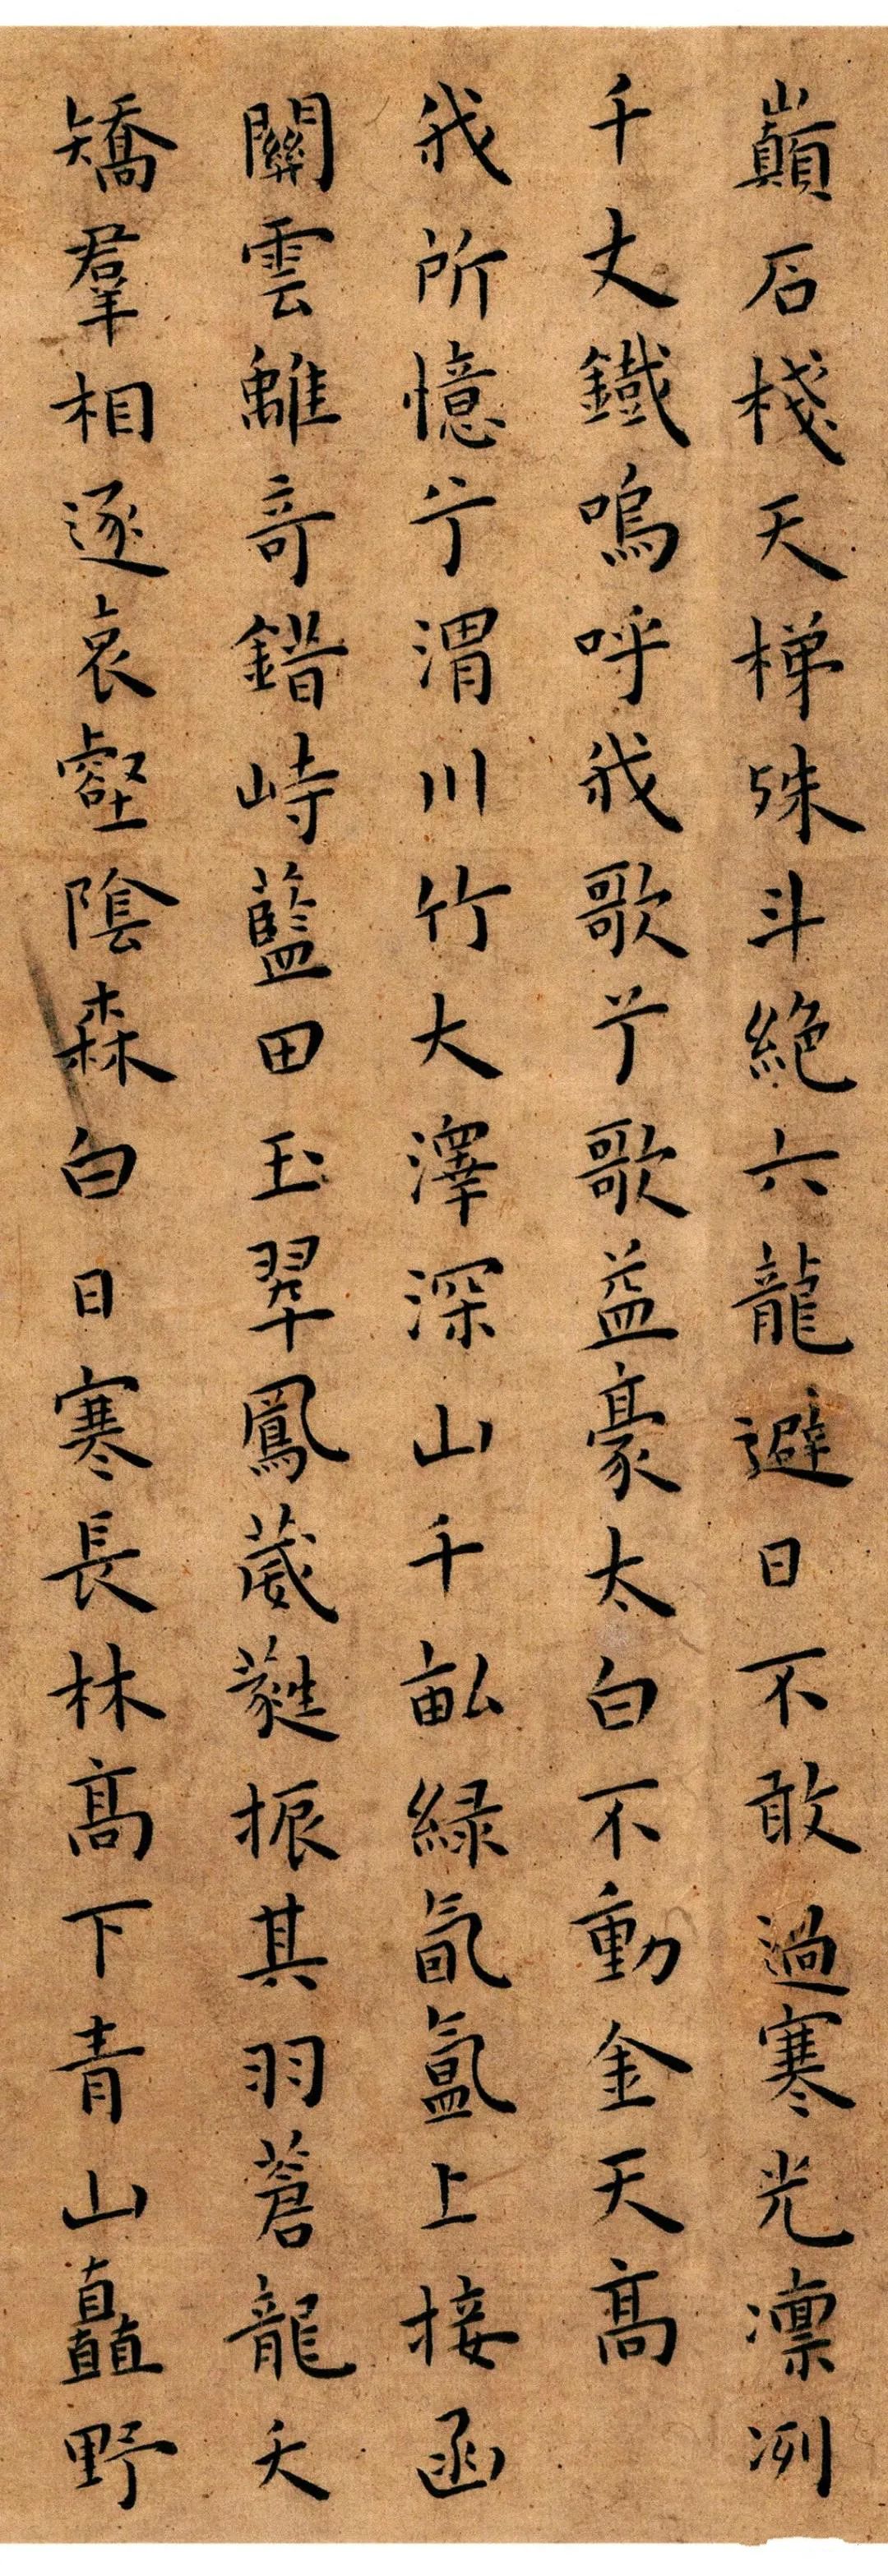 巔石棧天梯殊斗絕六龍避日不敢過寒光凛冽
千丈鐵嗚呼我歌兮歌益豪太白不動金天高
我所憶兮渭川竹大澤深山千畝綠氤氳上接函
關雲離奇錯峙藍田玉翠鳳葳蕤振其羽蒼龍夭
矯羣相逐哀壑陰森白日寒長林高下青山矗野